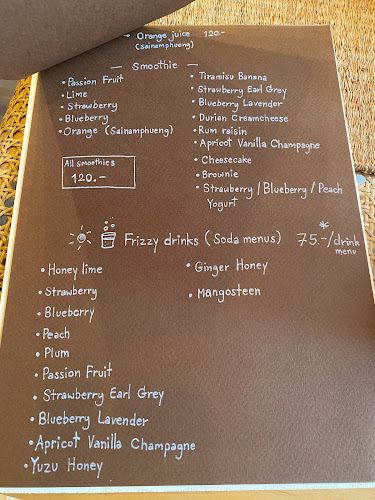 Orange juice 120.-
(Sainamphueng)
— Smoothie —
• Passion Fruit
• Lime
• Strawberry
• Blueberry
• Orange (Sainamphueng)
All smoothies
120.-
• Tiramisu Banana
• Strawberry Earl Grey
• Blueberry Lavender
• Durian Creamcheese
• Rum raisin
• Apricot Vanilla Champagne
• Cheesecake
• Brownie
• Strawberry / Blueberry / Peach
Yogurt
Frizzy drinks (Soda menus) 75.-/drink
menu
• Honey lime
• Strawberry
• Blueberry
• Peach
• Plum
• Passion Fruit
• Strawberry Earl Grey
• Blueberry Lavender
• Apricot Vanilla Champagne
• Yuzu Honey
• Ginger Honey
• Mangosteen